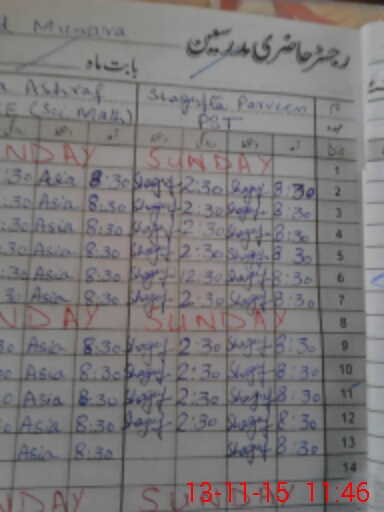 رجسٹر حاضری مدرسین
بابت ماہ
Ashraf Shagufta Parveen
(Sci Math) PST
SUNDAY 1
:30 Asia 8:30 Shaguf 2:30 Shaguf 8:30 2
:30 Asia 8:30 Shaguf 2:30 Shaguf 8:30 3
:30 Asia 8:30 Shaguf 2:30 Shaguf 8:30 4
:30 Asia 8:30 Shaguf 2:30 Shaguf 8:30 5
:30 Asia 8:30 Shaguf 12:30 Shaguf 8:30 6
:30 Asia 8:30 Shaguf 2:30 Shaguf 8:30 7
NDAY SUNDAY 8
30 Asia 8:30 Shaguf 2:30 Shaguf 8:30 9
Asia 8:30 Shaguf 2:30 Shaguf 8:30 10
Asia 8:30 Shaguf 2:30 Shaguf 8:30 11
Asia 8:30 Shaguf 2:30 Shaguf 8:30 12
Asia 8:30 Shaguf 8:30 13
14
NDAY SUNDAY
13-11-15 11:46